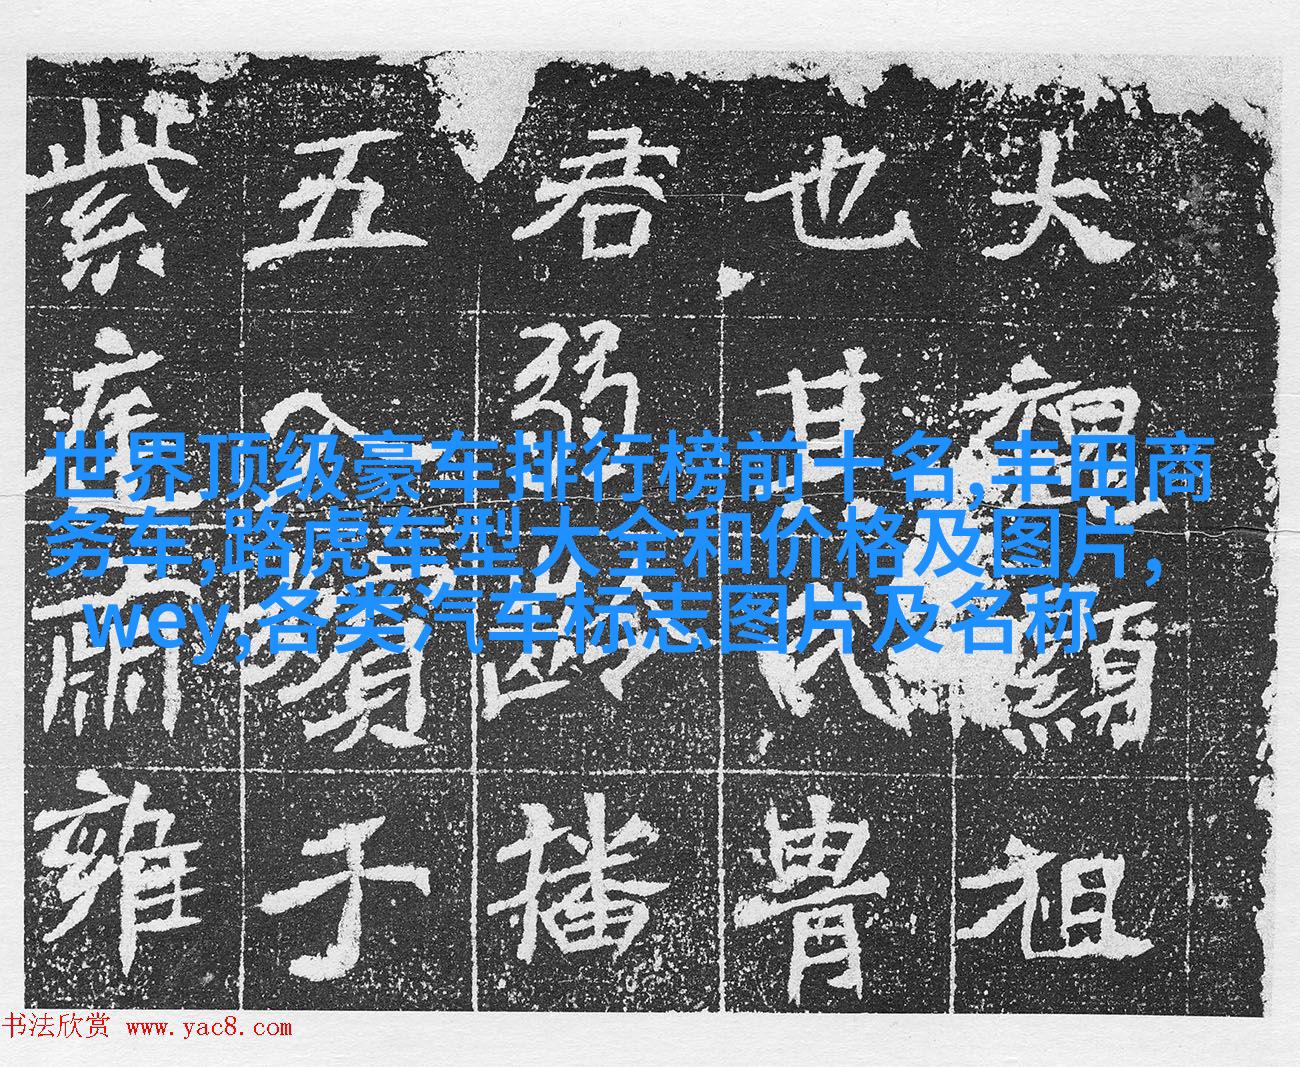 世界顶级豪车排行榜前十名,丰田商
务车,路虎车型大全和价格及图片,
wey,各类汽车标志图片及名称
大 顯祖
也其 胄
君弱齡播
五 于
紫 肅雍
书法欣赏 www.yac8.com